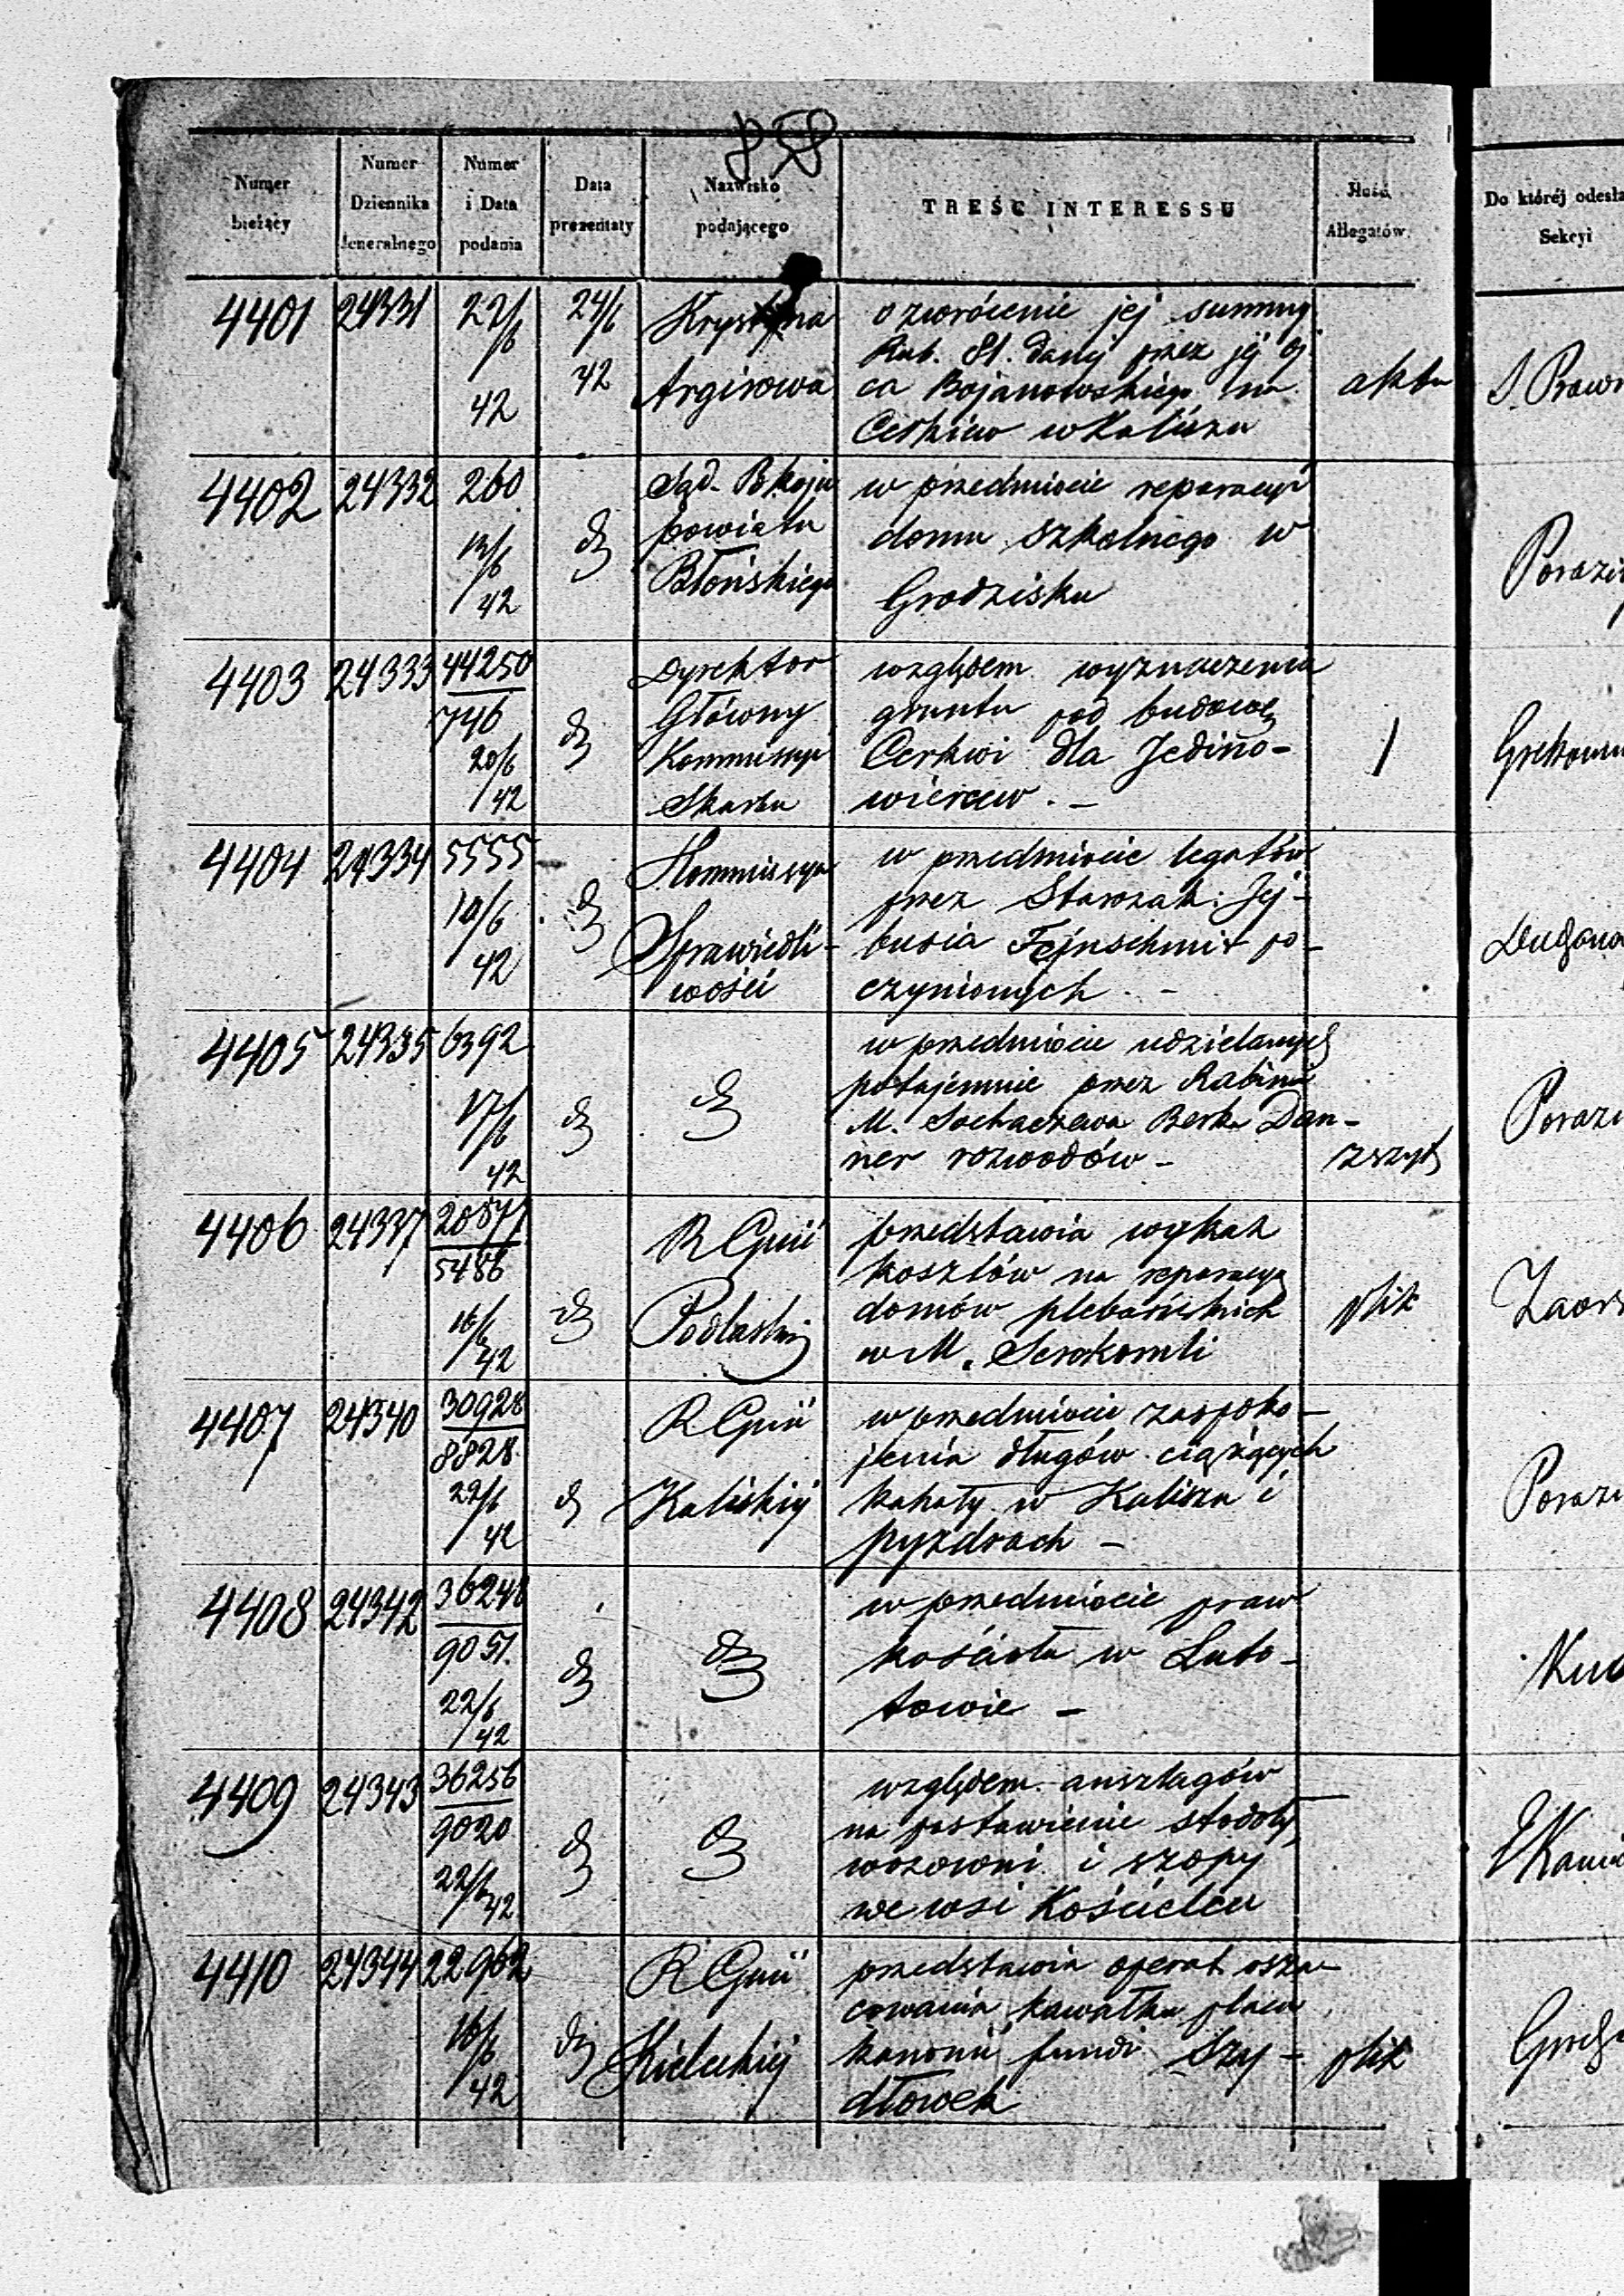 858
Numer bieżący
Numer Dziennika Jeneralnego
Numer i Data podania
Data prezentaty
Nazwisko podającego
TREŚĆ INTERESSU
Ilość Allegatów
Do któréj odesła
Sekcyi
4401 24331 22/6 42 24/6 42
Krystyna
Argirowa
o zwrócenie jej summy
Rub. St. danej przez jej oj
ca Bojanowskiego na
Cerkiew w Kaliszu
akta
S. Prawn
4402 24332 260 13/6 42 dt
Sąd Pkoju
powiatu
Błońskiego
w przedmiocie reparacyi
domu szkolnego w
Grodzisku
Porazi
4403 24333 44250/746 20/6 42 dt
Dyrektor
Główny
Kommissyi
Skarbu
względem wyznaczenia
gruntu pod budowę
Cerkwi dla Jedino-
wierców. -
1
4404 24334 5555 10/6 42 dt
Kommissya
Sprawiedli-
wości
w przedmiocie legatów
przez Starozak: Jej-
busia Fejnschmit po-
czynionych -
4405 24335 6392 17/6 42 dt
dt
w przedmiocie udzielanych
potajemnie przez Rabina
M. Sochaczewa Berka Dan-
ner rozwodów -
zszyt
Porazi
4406 24337 20871/5486 16/6 42 dt
R Gnii
Podlaskiej
przedstawia wykaz
kosztów na reparacyę
domów plebańskich
w M. Serokomli
plik
Zaors
4407 24340 30928/8828 22/6 42 dt
R Gnii
Kaliskiej
w przedmiocie zaspoko-
jenia długów ciążących
kahały w Kaliszu i
Pyzdrach -
Porazi
4408 24342 36248/9051. 22/6 42 dt
dt
w przedmiocie praw
kościoła w Luto-
towie -
4409 24343 36256/9020 22/6 42 dt
dt
względem anszlagów
na postawienie stodoły,
wozowni i szopy
we wsi Kościelcu
4410 24344 22962 16/6 42 dt
R Gnii
Kieleckiej
przedstawia operat osza-
cowania kawałka placu
kanonii fundi Szy-
dłowek
plik